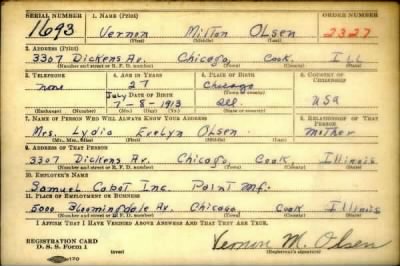 SERIAL NUMBER 1. NAME (Print) ORDER NUMBER
1693 Vernon Milton OLSEN 2327
(First) (Middle) (Last)
2. ADDRESS (Print)
3307 Dickens Av. Chicago, Cook. ILL
(Number and street or R. F. D. number) (Town) (County) (State)
3. TELEPHONE 4. AGE IN YEARS 5. PLACE OF BIRTH 6. COUNTRY OF CITIZENSHIP
none 27 Chicago
DATE OF BIRTH (Town or county)
July
7-5-1913 Ill. USA
(Exchange) (Number) (Mo.) (Day) (Yr.) (State or country)
7. NAME OF PERSON WHO WILL ALWAYS KNOW YOUR ADDRESS 8. RELATIONSHIP OF THAT PERSON
Mrs. Lydia Evelyn Olsen Mother
(Mr., Mrs., Miss) (First) (Middle) (Last)
9. ADDRESS OF THAT PERSON
3307 Dickens Av. Chicago, Cook Illinois
(Number and street or R. F. D. number) (Town) (County) (State)
10. EMPLOYER'S NAME
Samuel Cabot Inc. Paint Mf.
11. PLACE OF EMPLOYMENT OR BUSINESS
5000 Bloomingdale Av. Chicago Cook Illinois
(Number and street or R. F. D. number) (Town) (County) (State)
I AFFIRM THAT I HAVE VERIFIED ABOVE ANSWERS AND THAT THEY ARE TRUE.
REGISTRATION CARD
D. S. S. Form 1 (over) Vernon M. Olsen
(Registrant's signature)